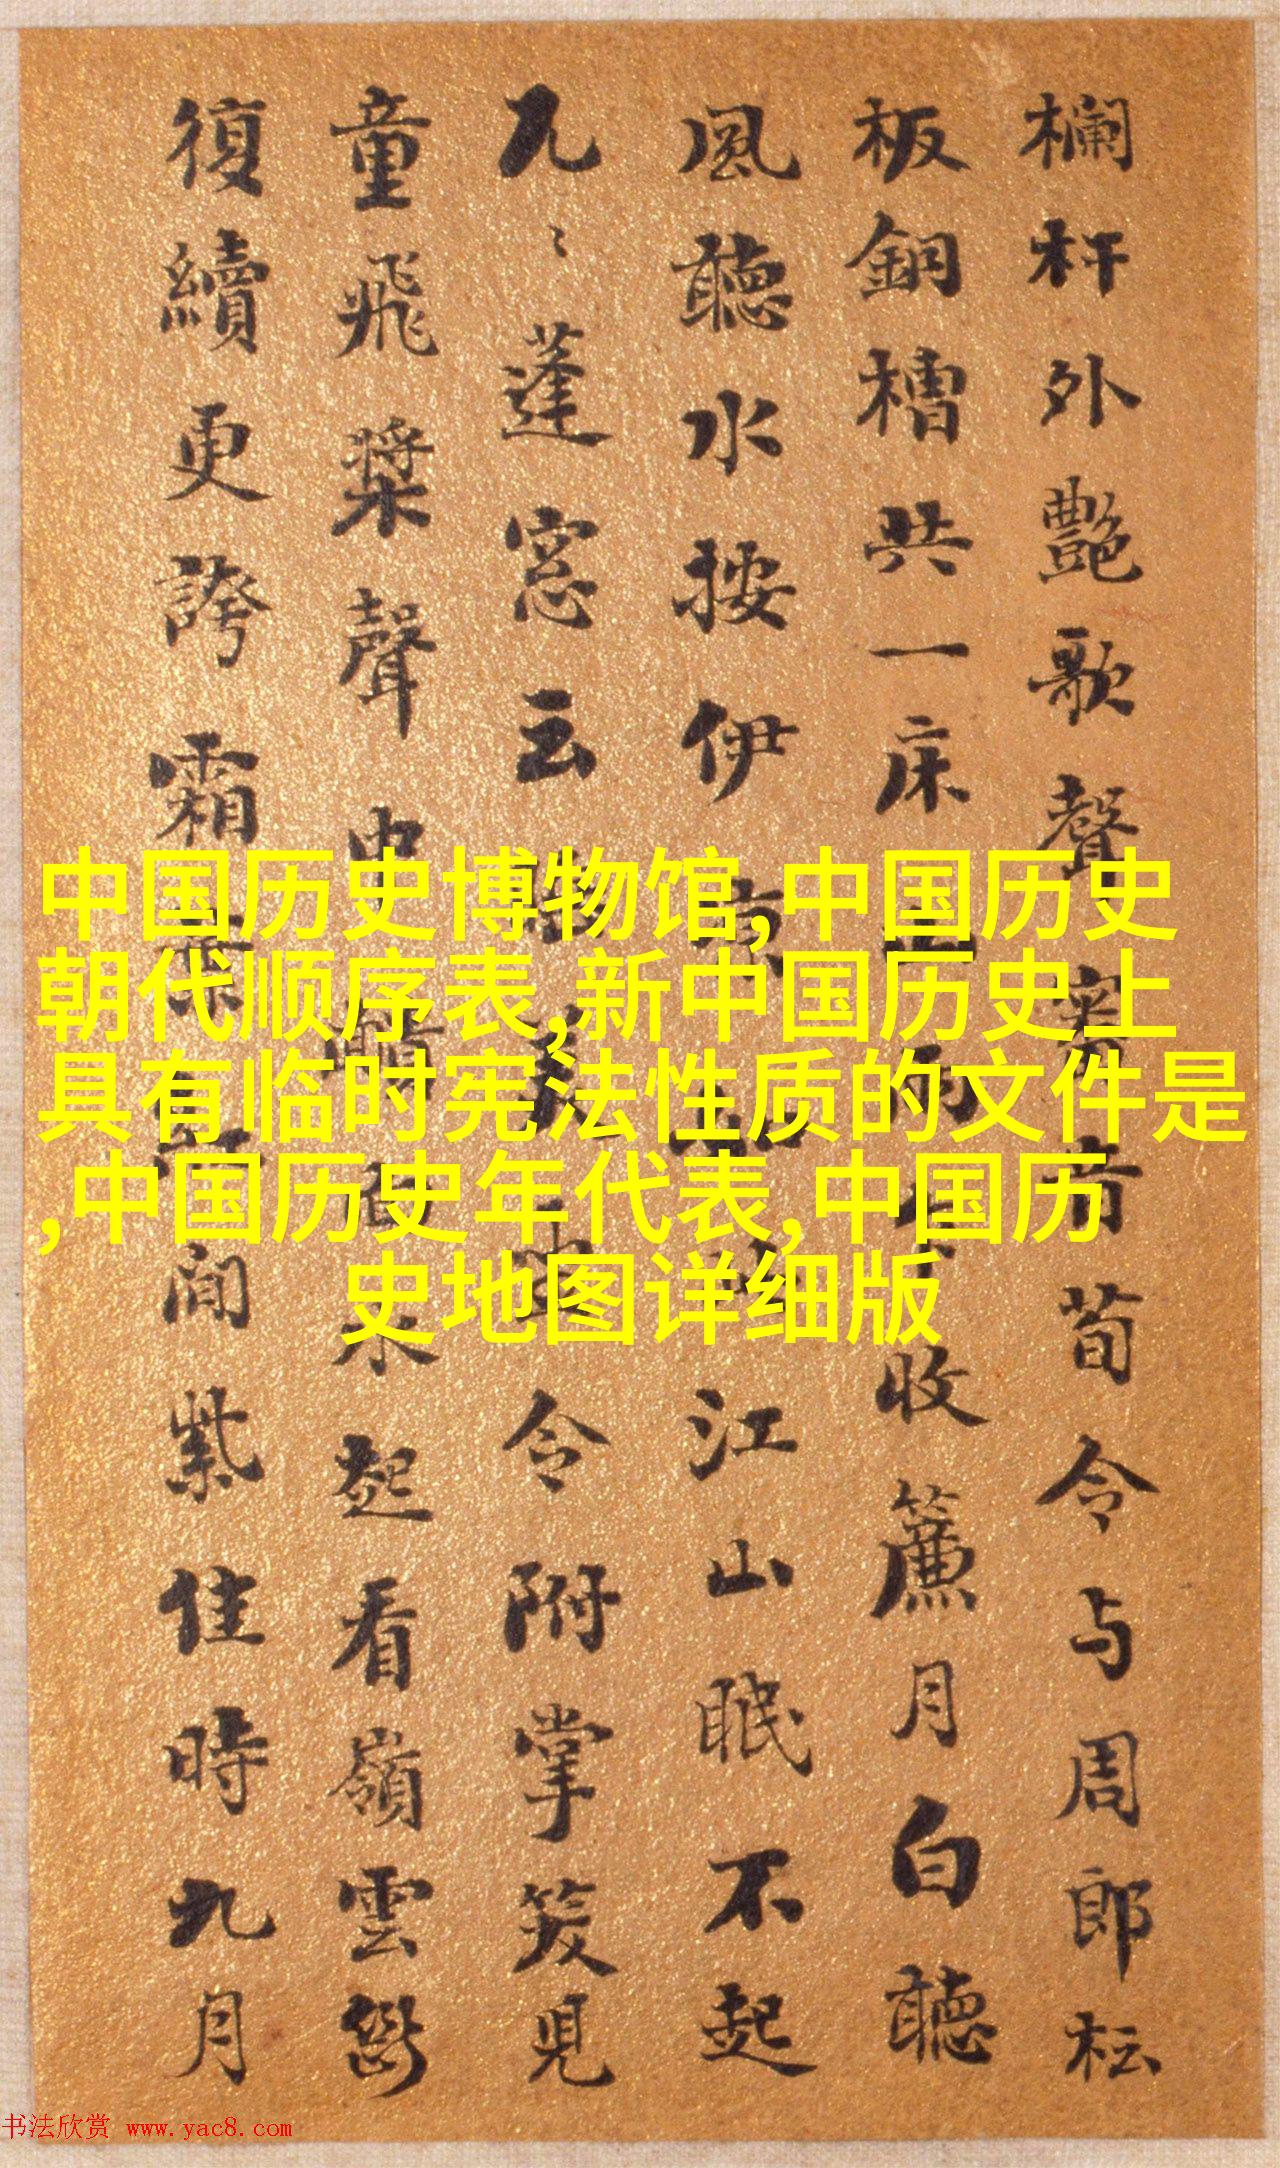 欄杆外艷歌聲荀令与周郎松
板銅槽共一床雨收簾月白聽
風聽水按伊涼江山眠不起
九〻蓬窓云令附掌笑見
童飛槳聲中水起看嶺雲
復續更誇霜間紫佳時九月
中国历史博物馆,中国历史
朝代顺序表,新中国历史上
具有临时宪法性质的文件是
,中国历史年代表,中国历
史地图详细版
书法欣赏 www.yac8.com